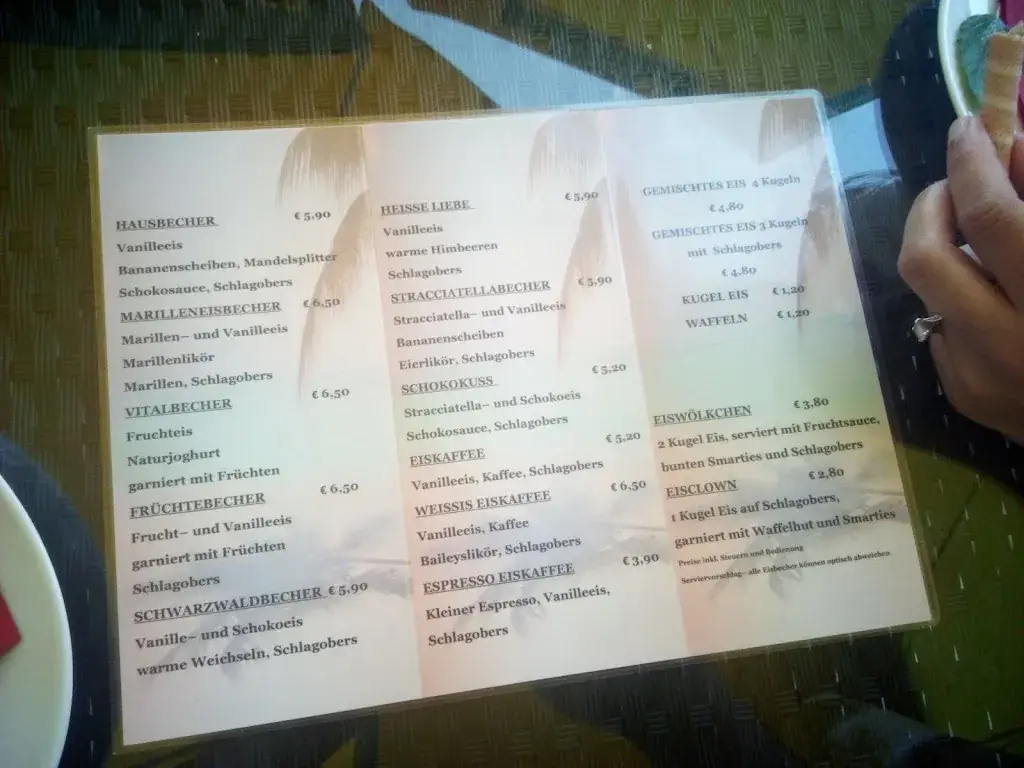 HAUSBECHER € 5,90
Vanilleeis
Bananenscheiben, Mandelsplitter
Schokosauce, Schlagobers
MARILLENEISBECHER € 6,50
Marillen– und Vanilleeis
Marillenlikör
Marillen, Schlagobers
VITALBECHER € 6,50
Fruchteis
Naturjoghurt
garniert mit Früchten
FRÜCHTEBECHER € 6,50
Frucht– und Vanilleeis
garniert mit Früchten
Schlagobers
SCHWARZWALDBECHER € 5,90
Vanille– und Schokoeis
warme Weichseln, Schlagobers
HEISSE LIEBE € 5,90
Vanilleeis
warme Himbeeren
Schlagobers
STRACCIATELLABECHER € 5,90
Stracciatella– und Vanilleeis
Bananenscheiben
Eierlikör, Schlagobers
SCHOKOKUSS € 5,20
Stracciatella– und Schokoeis
Schokosauce, Schlagobers
EISKAFFEE € 5,20
Vanilleeis, Kaffee, Schlagobers
WEISSIS EISKAFFEE € 6,50
Vanilleeis, Kaffee
Baileyslikör, Schlagobers
ESPRESSO EISKAFFEE € 3,90
Kleiner Espresso, Vanilleeis,
Schlagobers
GEMISCHTES EIS 4 Kugeln
€ 4,80
GEMISCHTES EIS 3 Kugeln
mit Schlagobers
€ 4,80
KUGEL EIS € 1,20
WAFFELN € 1,20
EISWÖLKCHEN € 3,80
2 Kugel Eis, serviert mit Fruchtsauce,
bunten Smarties und Schlagobers
EISCLOWN € 2,80
1 Kugel Eis auf Schlagobers,
garniert mit Waffelhut und Smarties
Preise inkl. Steuern und Bedienung
Serviervorschlag– alle Eisbecher können optisch abweichen